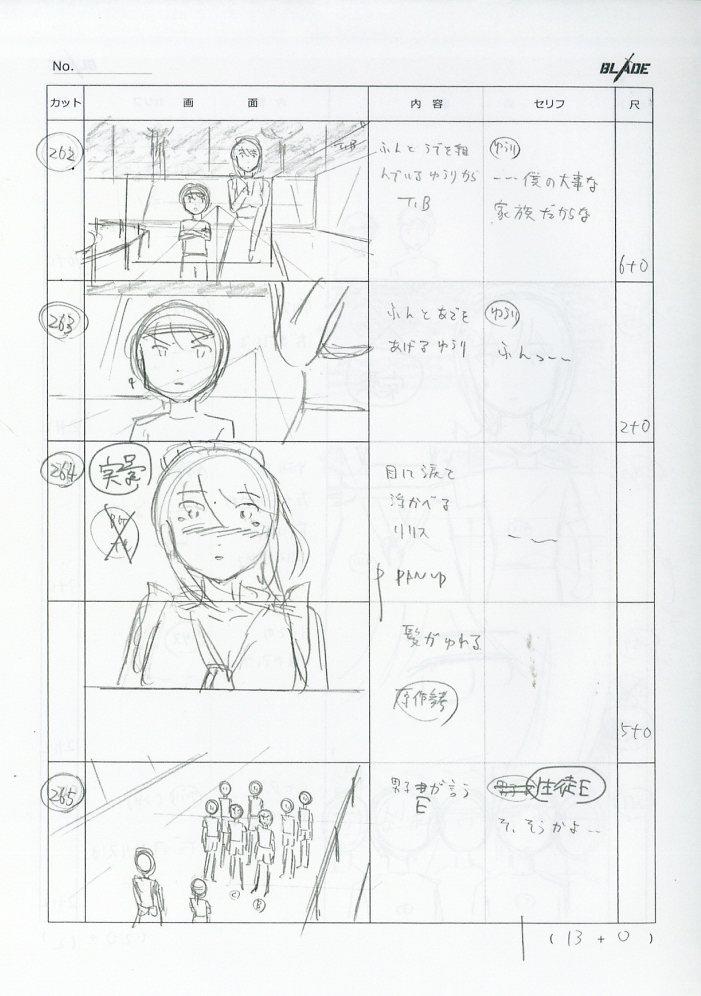 No.
BLADE
カット 画 面 内 容 セリフ 尺
262
T.B
ふんと うでを組
んでいる ゆうりから
T.B
ゆうり
…僕の大事な
家族だからな
6+0
263
ふんと あごを
あげる ゆうり
ゆうり
ふんっ〜〜
2+0
264
目に涙を
浮かべる
リリス
PAN UP
髪がゆれる
原作参考
5+0
265
C
B
男子
Eが言う
生徒E
そ、そうかよ‥
( 13 + 0 )